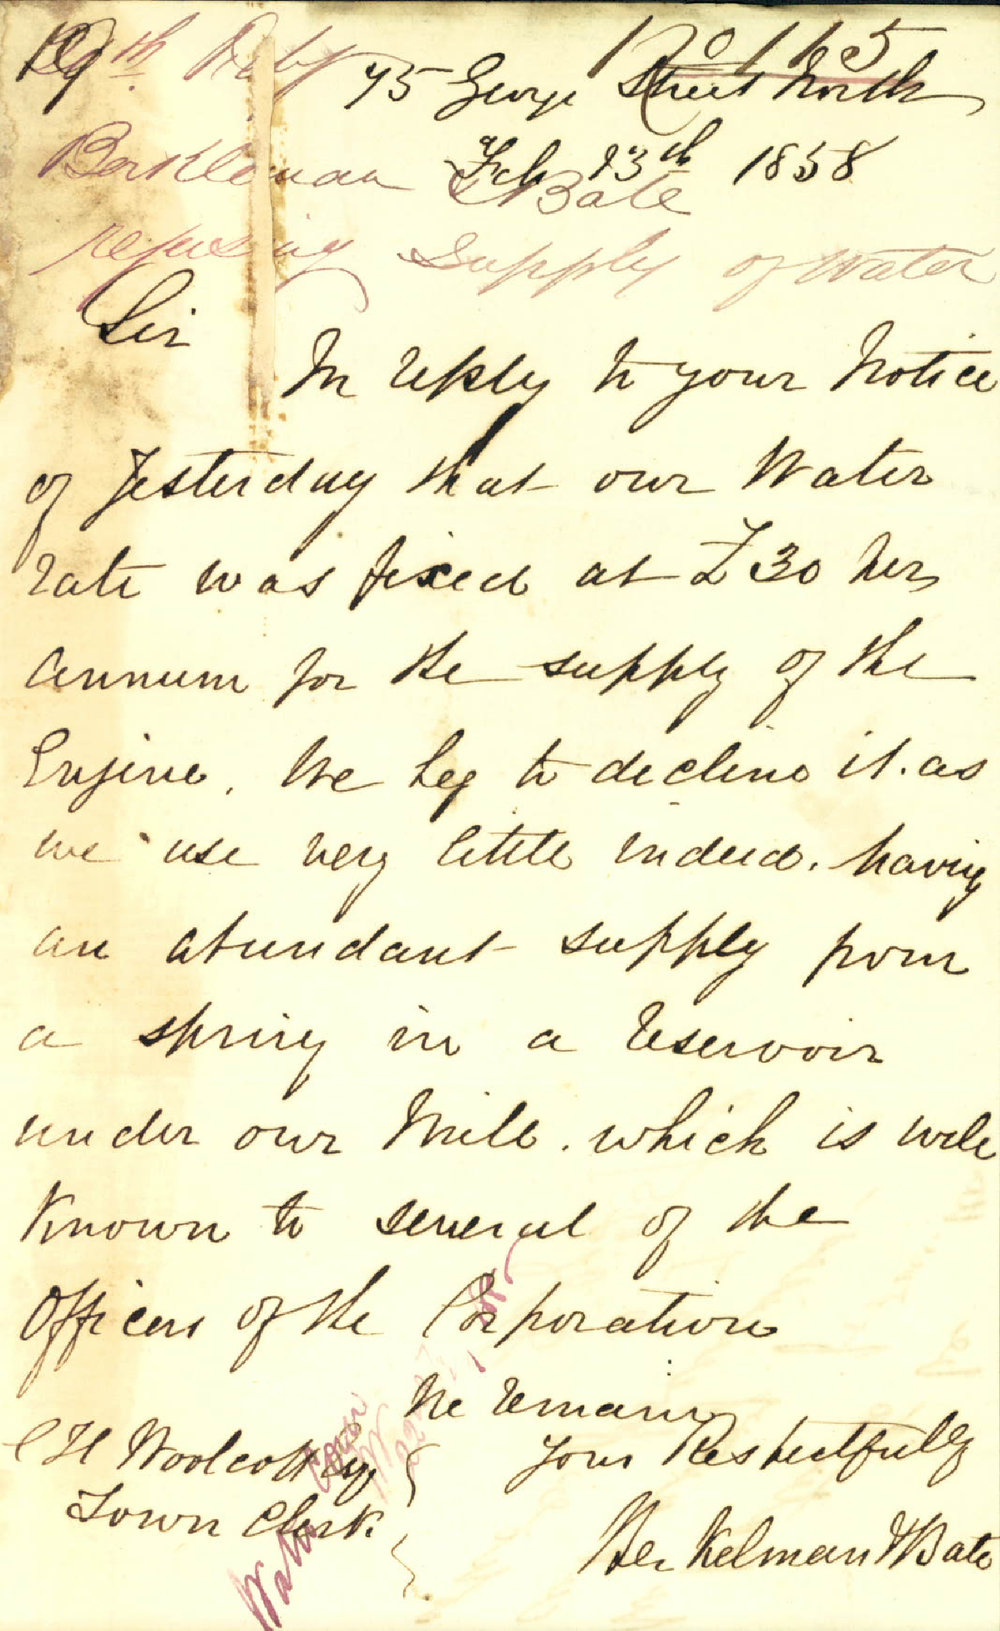 No 165
75 George Street North
Feb 13th 1858
Berkleman & Bate
refusing Supply of Water
Sir
In reply to your Notice
of Yesterday that our Water
rate was fixed at £30 per
Annum for the supply of the
Engine, We beg to decline it. as
we use very little indeed. having
an abundant supply from
a spring in a reservoir
under our Mill. which is well
Known to several of the
Officers of the Corporation
We remain
Your Respectfully
C H Woolcott Esq
Town Clerk.
Berkelman & Bate
Water